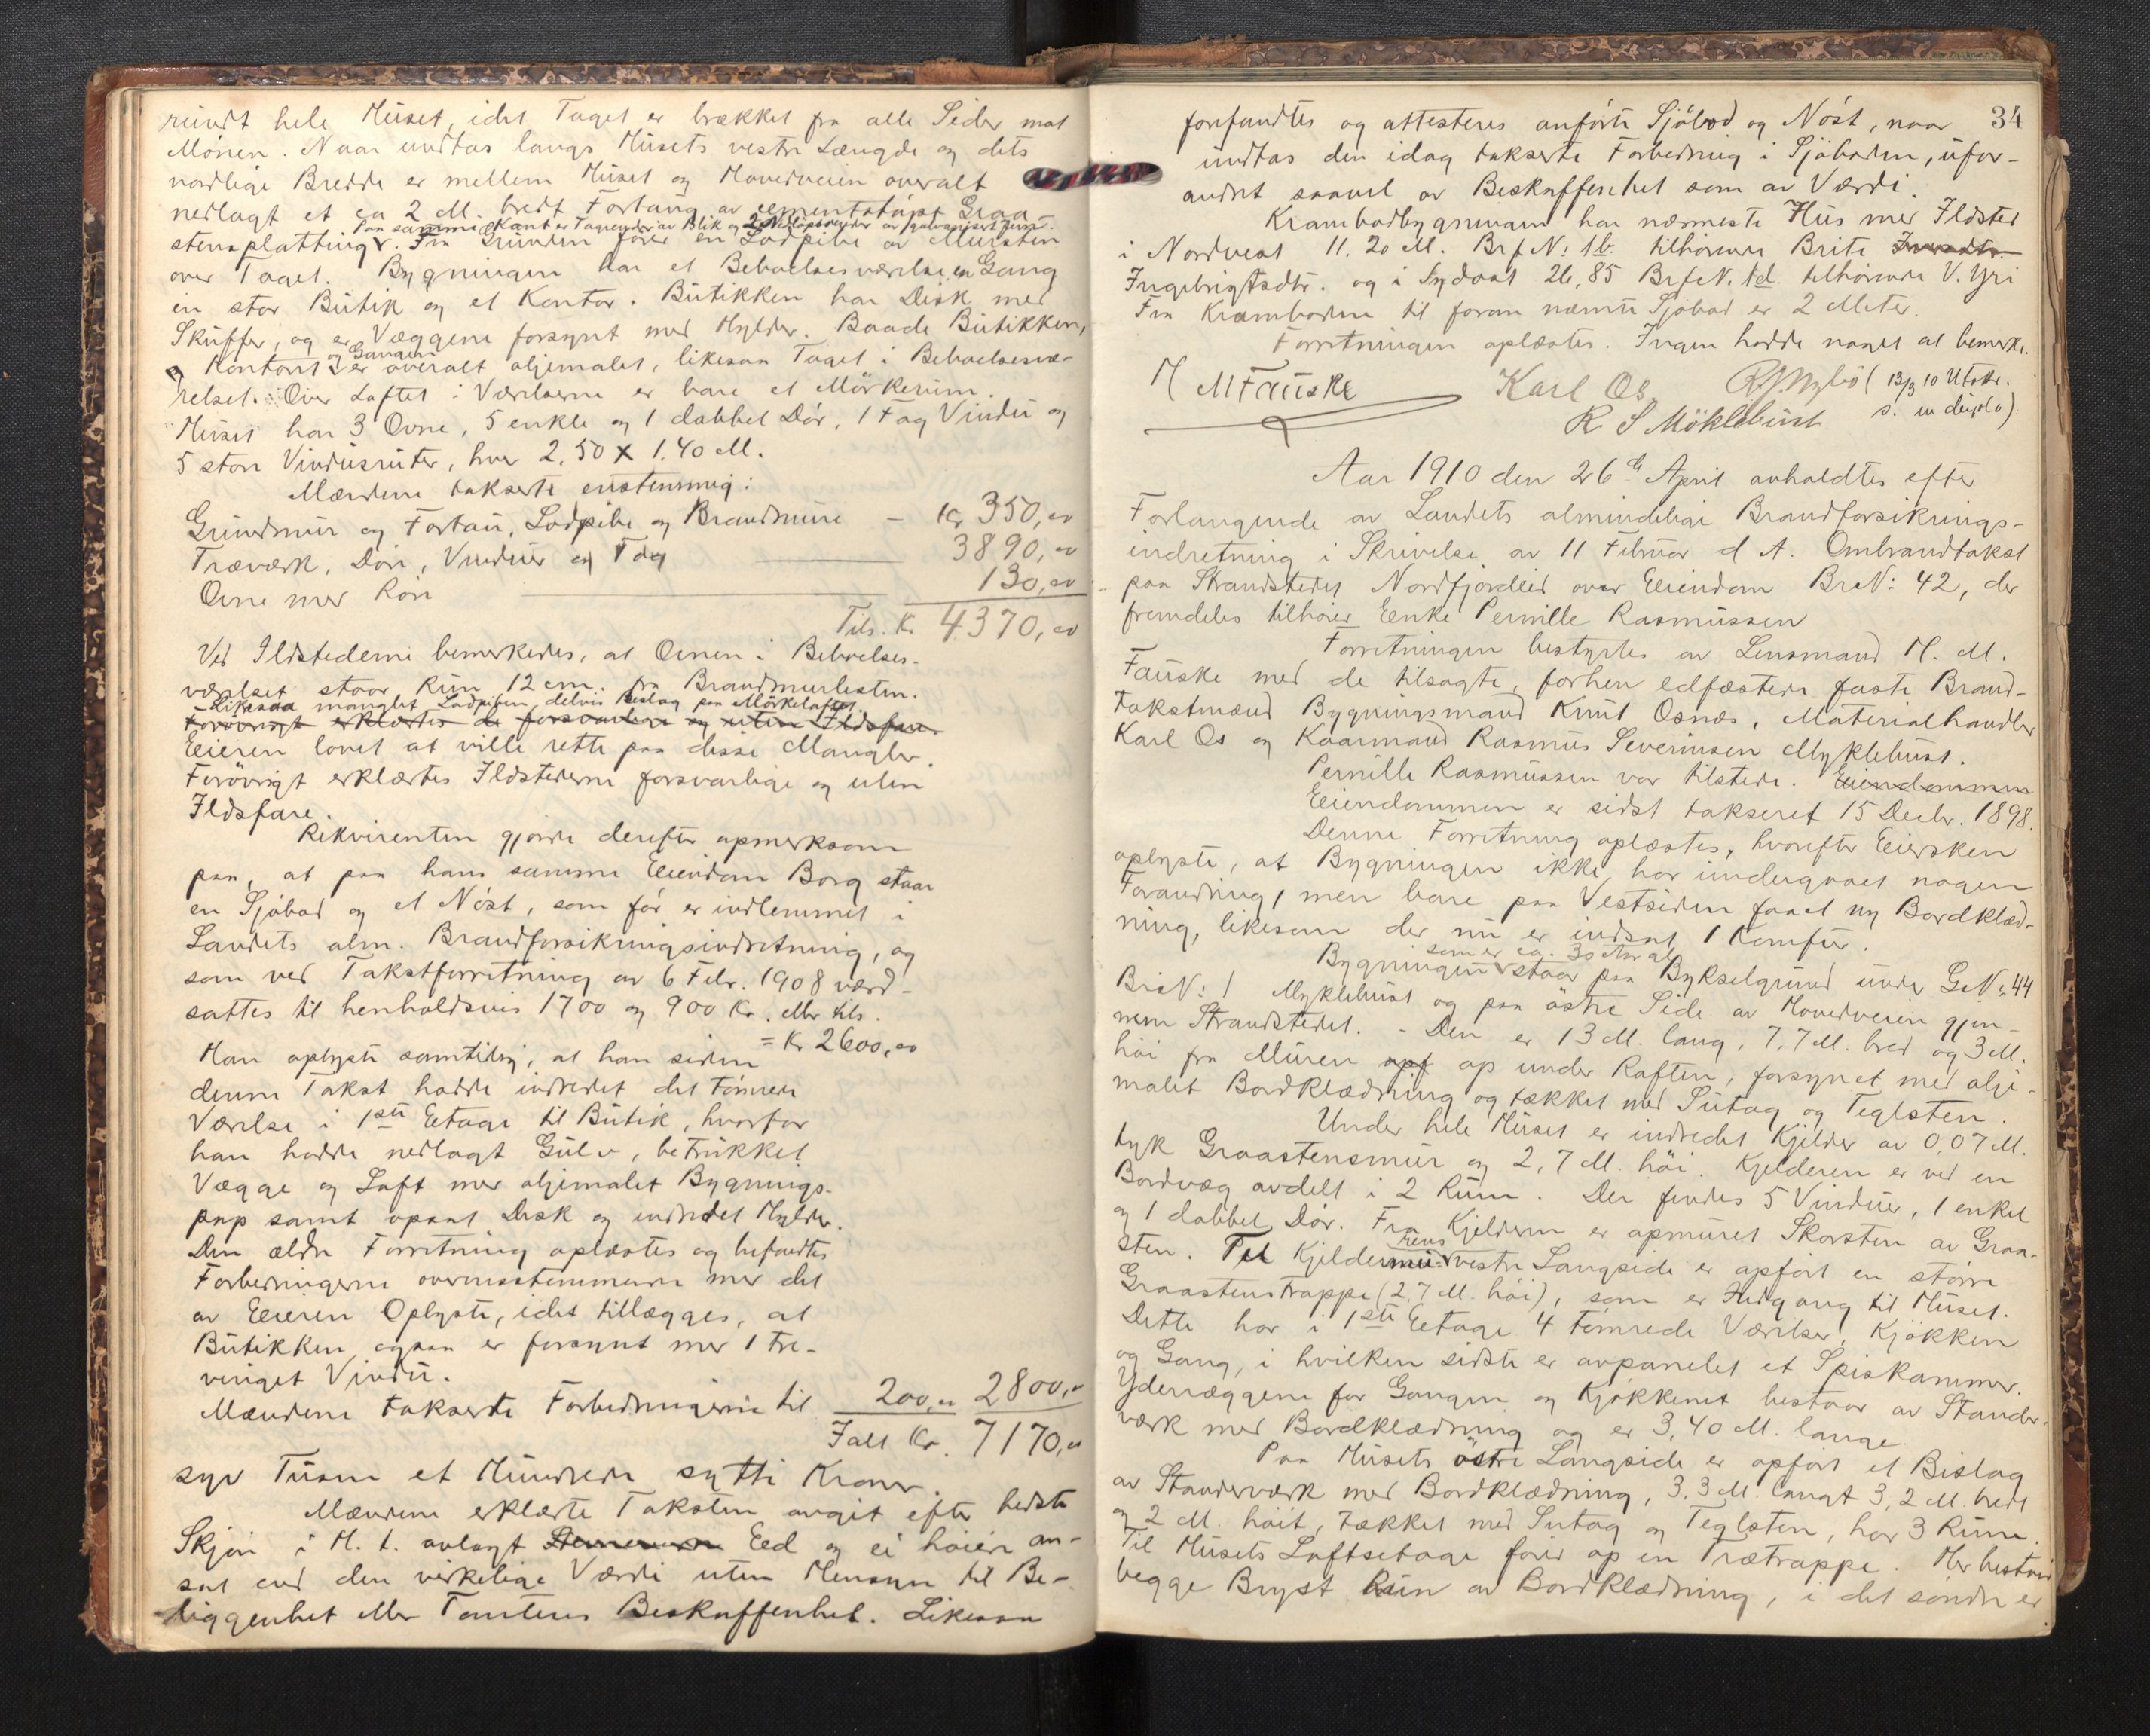 rundt hele Huset, idet Taget er brækket fra alle Sider mot
Mønen. Naar undtas langs Husets vestre Længde og dets
nordlige Bredde er mellem Huset og Hovedveien overalt
nedlagt et ca 2 M. bredt Fortaug av cementstøpt Graa-
Paa samme Kant er Tagrender av Blik og 2 Nedløpsrender av galvanisert Jern.
stensplatting. Fra Grunden fører en Lodpibe av Mursten
over Taget. Bygningen har et Beboelsesværelse, en Gang
en stor Butik og et Kontor. Butikken har Disk med
Skuffer, og er Væggene forsynt med Hylder. Baade Butikken,
og Gangen
og Kontoret er overalt oljemalet, likesaa Taget i Beboelsesvæ-
relset. Over Loftet i Værelserne er bare et Mörkerum.
Huset har 3 Ovne, 5 enkle og 1 dobbel Dör, 1 Fag Vindu og
5 store Vindusruter, hver 2,50 X 1,40 M.
Mændene takserte enstemmig:
Grundmur og Fortau, Lodpibe og Brandmure - Kr 350,00
Træværk, Döre, Vinduer og Tag 3890,00
Ovne med Rör 130,00
Tils. Kr 4370,00
Ved Ildstederne bemerkedes, at Ovnen i Beboelses-
værelset staar kun 12 cm. fra Brandmurlisten.
Likesaa manglet Lodpiben delvis Beslag paa Mörkeloftet.
Forövrigt erklærtes de forsvarlige og uten Ildsfare.
Eieren lovet at ville rette paa disse Mangler.
Forövrigt erklærtes Ildstederne forsvarlige og uten
Ildsfare.
Rekvirenten gjorde derefter opmerksom
paa, at paa hans samme Eiendom Borg staar
en Sjöbod og et Nöst, som för er indlemmet i
Landets alm. Brandforsikringsindretning, og
som ved Takstforretning av 6 Febr. 1908 værd-
sattes til henholdsvis 1700 og 900 Kr. eller tils.
= Kr 2600,00
Han oplyste samtidig, at han siden
denne Takst hadde indredet det tömrede
Værelse i 1ste Etage til Butik, hvorfor
han hadde nedlagt Gulv, betrukket
Vægge og Loft med oljemalet Bygnings-
pap samt opsat Disk og indredet Hylder.
Den ældre Forretning oplæstes og befandtes
Forbedringerne overensstemmende med det
av Eieren Oplyste, idet tillægges, at
Butikken ogsaa er forsynt med 1 tre-
vinget Vindu.
Mændene takserte Forbedringerne til 200,00 2800,00
Ialt Kr. 7170,00
syv Tusen et Hundrede sytti Kroner.
Mændene erklærte Taksten avgit efter bedste
Skjön i H. t. avlagt Eed og ei höiere an-
sat end den virkelige Værdi uten Hensyn til Be-
liggenhet eller Tomtens Beskaffenhet. Likesaa
34
forefandtes og attesteres anförte Sjöbod og Nöst, naar
undtas den idag takserte Forbedring i Sjöboden, ufor-
andret saavel av Beskaffenhet som av Værdi.
Krambodbygningen har nærmeste Hus med Ildsted
i Nordvest 11.20 M. Br f N: 1 b. tilhörende Brite
Ingebrigtsdtr. og i Sydost 26,85 Br f N. 1 d. tilhörende V. Yri
Fra Kramboden til foran nævnte Sjöbod er 2 Meter.
Forretningen oplæstes. Ingen hadde noget at bemerke.
H M Fauske Karl Os (13/3 10 Utskr.
R S Möklebust
Aar 1910 den 26de April avholdtes efter
Forlangende av Landets almindelige Brandforsikrings-
indretning i Skrivelse av 11 Februar d A. Ombrandtakst
paa Strandstedet Nordfjordeid over Eiendom Br N: 42, der
fremdeles tilhører Enke Pernille Rasmussen
Forretningen bestyrtes av Lensmand H. M.
Fauske med de tilsagte, forhen edfæstede faste Brand-
takstmænd Bygningsmand Knut Osnæs, Materialhandler
Karl Os og Kaarmand Rasmus Severinsen Myklebust.
Pernille Rasmussen var tilstede. Eiendommen
Eiendommen er sidst takseret 15 Decbr. 1898.
Denne Forretning oplæstes, hvorefter Eiersken
oplyste, at Bygningen ikke har undergaaet nogen
Forandring, men bare paa Vestsiden faaet ny Bordklæd-
ning, likesom der nu er indsat 1 Komfur.
som er ca. 30 Aar gl.
Bygningen staar paa Bykselgrund under G N: 44
Br N: 1 Myklebust og paa östre Side av Hovedveien gjen-
nem Strandstedet. - Den er 13 M. lang, 7,7 M. bred og 3 M.
höi fra Muren opf op under Raften, forsynet med olje-
malet Bordklædning og tækket med Sutag og Teglsten.
Under hele Huset er indredet Kjelder av 0,07 M.
tyk Graastensmur og 2,7 M. höi. Kjelderen er ved en
Bordvæg avdelt i 2 Rum. Der findes 5 Vinduer, 1 enkel
og 1 dobbel Dör. Fra Kjelderen er opmuret Skorsten av Graa-
sten. Til Kjelderens vestre Langside er opfört en större
Graastenstrappe (2,7 M. höi), som er Indgang til Huset.
Dette har i 1ste Etage 4 tömrede Værelser, Kjökken
og Gang, i hvilken sidste er avpanelet et Spiskammer.
Ydervæggene for Gangen og Kjökkenet bestaar av Stander-
værk med Bordklædning og er 3,40 M. lange.
Paa Husets östre Langside er opfört et Bislag
av Standerværk med Bordklædning, 3.3 M. langt 3,2 M. bredt
og 2 M. höit, tækket med Sutag og Teglsten, har 3 Rum.
Til Husets Loftsetage förer op en Trætrappe. Her bestaar
begge Bryst kun av Bordklædning, i det söndre er